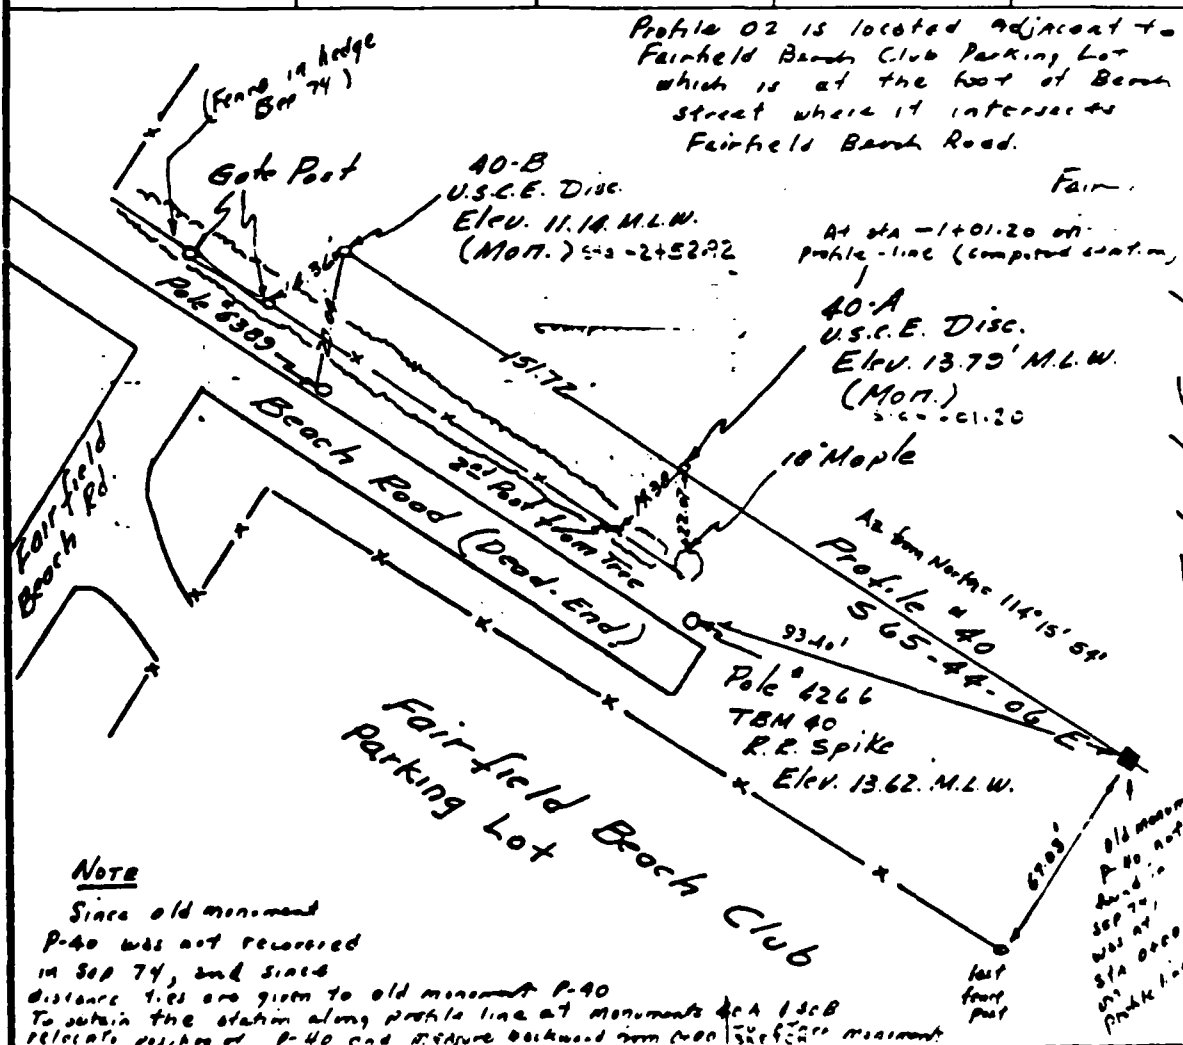 Profile 02 is located adjacent to
Fairfield Beach Club Parking Lot
which is at the foot of Beach
street where it intersects
Fairfield Beach Road.
(Fence in hedge
Sep 74)
Gate Post
40-B
U.S.C.E. Disc.
Elev. 11.14 M.L.W.
(Mon.) sta -2+52.92
Fair
At sta -1+01.20 on
profile line (computed station,
40-A
U.S.C.E. Disc.
Elev. 13.79' M.L.W.
(Mon.)
Pole #6389
151.72
18" Maple
14.38
22.67
Beach Road (Dead-End)
2nd Post from Tree
Fairfield
Beach Rd.
Az from North 114° 15' 54"
Profile #40
S 65-44-06 E
93.40'
Pole #6266
TBM 40
R.R. Spike
Elev. 13.62 M.L.W.
Fairfield Beach Club
Parking Lot
67.03'
old monum
P-40 not
found in
Sep 74,
was at
sta 0+00
on
profile line
last
fence
post
NOTE
Since old monument
P-40 was not recovered
in Sep 74, and since
distance ties are given to old monument P-40
To obtain the station along profile line at monuments
relocate position of P-40 and measure backward from monument